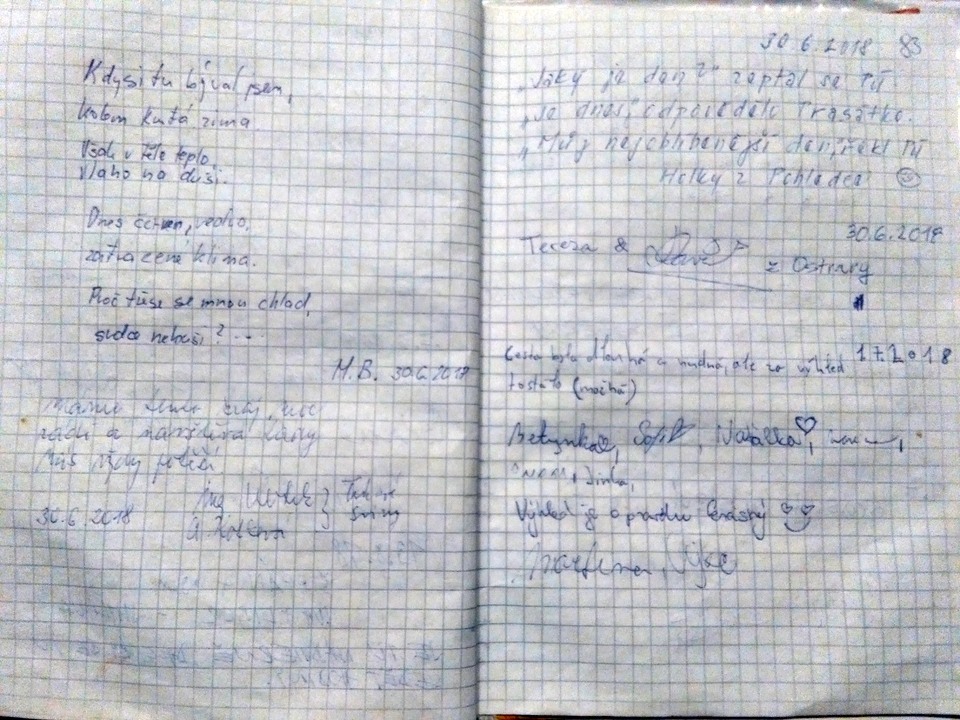 Kdysi tu býval jsem,
kolem krutá zima.
Však v těle teplo,
vlaho na duši.
Dnes červen, vedro,
zatracené klima.
Proč třese se mnou chlad,
srdce nebuší? ...
M.B. 30.6.2018
Máme tento kraj moc
rádi a
nás vždy potěší
30.6 2018
30.6.2018 83
„Jaký je den?" zaptal se Pú.
„Je dnes," odpovědělo Prasátko.
„Můj nejoblíbenější den," řekl Pú
Holky z Pohledce ☺
30.6.2018
Tereza & David z Ostravy
1 7 2018
Cesta byla dlouhá a nudná, ale za výhled
to stálo (možná)
Betynka, Sofie, Natálka ♡,
Výhled je opravdu krásný ♡♡
Martina,